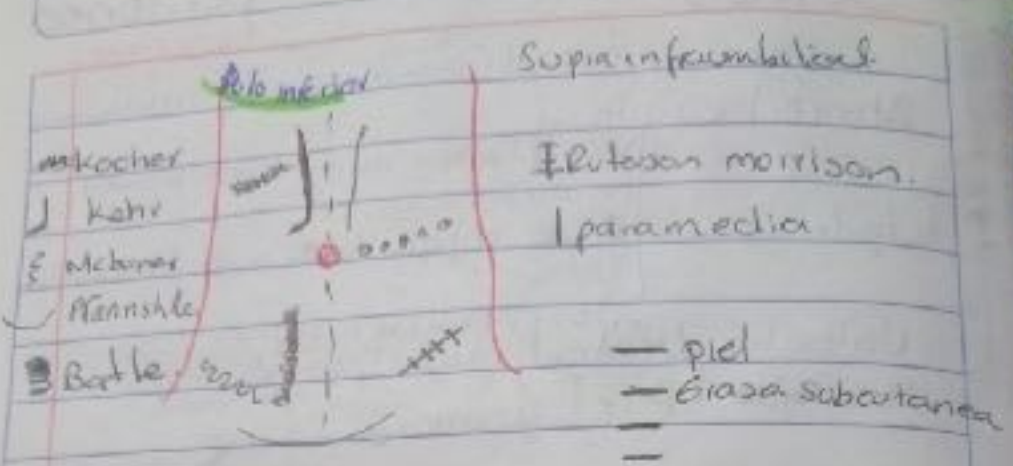 Supra infraumbilical
Kocher
Kehr
Mcburney
Battle
Rutason morrison.
paramedia
piel
Grasa subcutanea